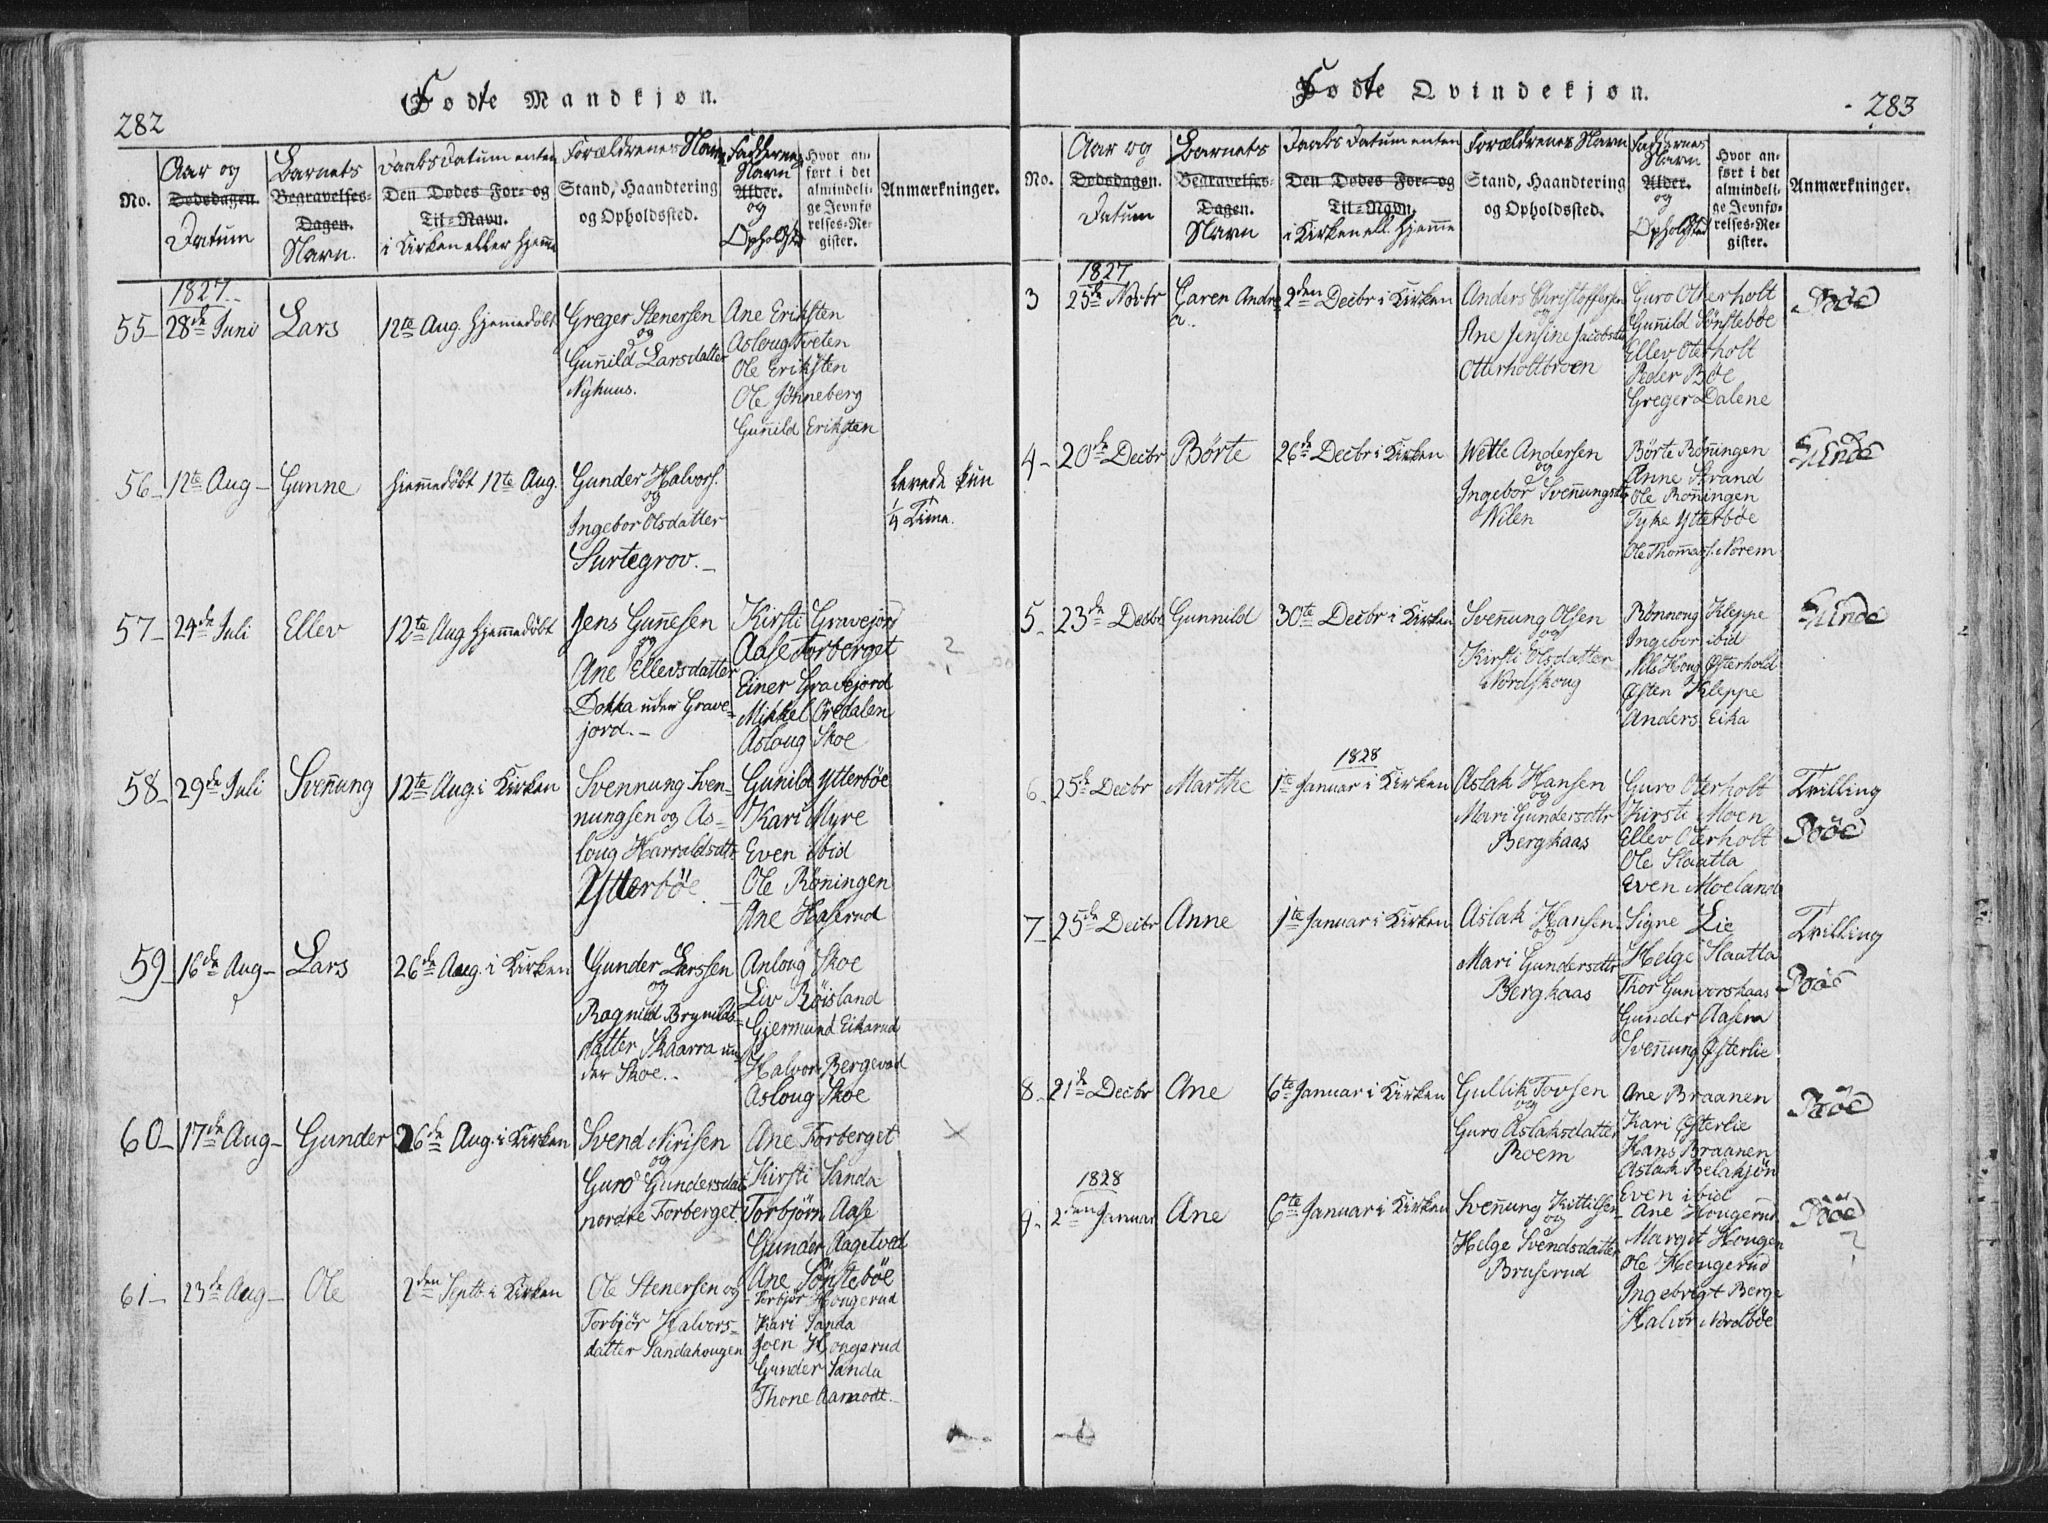 282
Fødte Mandkjøn.
No.
Aar og
Dødsdagen.
Datum
Barnets
Begravelses-
Dagen.
Navn.
Daabs Datum enten
Den Dødes For- og
Til-Navn.
i Kirken eller hjemme
Forældrenes Navn
Stand, Haandtering
og Opholdssted.
Faddernes
Navn
Alder.
og
Opholdsted
Hvor an-
ført i det
almindeli-
ge Jevnfø-
relses-Re-
gister.
Anmærkninger.
1827
55 - 28de Juni
Lars
12te Aug. hjemmedøbt
Greger Stenersen
og
Gunnild Larsdatter
Nyhuus.
Ane Eriksten
Asloug Tveten
Ole Eriksten
Ole Jønneberg
Gunnild Eriksten
56 - 12te Aug -
Gunne
hjemmedøbt 12te Aug.
Gunder Halvors.
og
Ingebor Olsdatter
Surtegrov. -
levede kun
1/4 Time.
57 - 24de Juli
Ellev
12te Aug hjemmedøbt
Jens Gunnesen
og
Ane Ellevsdatter
Dokka under Grave-
jord. -
Kirsti Gravejord
Aase Forberget
Einer Gravejord
Mikkel Øredalen
Asloug Skoe
?
58 - 29de Juli
Svennung
12te Aug i Kirken
Svennung Sven-
nungsen og As-
loug Harraldsdtr
Ytterbøe. -
Gunild Ytterbøe
Kari Myre
Even ibid
Ole Rønningen
Ane Haserud
59 - 16de Aug -
Lars
26de Aug. i Kirken
Gunder Larssen
og
Ragnild Brynilds-
datter Skaarra un-
der Skoe. -
Anloug Skoe
Liv Røisland
Gjermund Eikarud
Halvor Bergevad
Asloug Skoe
60 - 17de Aug -
Gunder
26de Aug. i Kirken
Svend Nirisen
og
Guro Gundersdat.
nordre Forberget.
Ane Forberget
Kirsti Sanda
Torbjørn Aase
Gunder Aagetved
Ane Sønstebøe
X
61 - 23de Aug -
Ole
2den Septb. i Kirken
Ole Stenersen og
Torbjør Halvors-
datter Sandahougen
Torbjør Hougerud
Kari Sanda
Joen Hougerud
Gunder Sanda
Thone Aamodt.
283
Fødte Qvindekjøn.
No.
Aar og
Dødsdagen.
Datum
Barnets
Begravelses-
Dagen.
Navn
Daabs Datum enten
Den Dødes For- og
Til-Navn.
i Kirken ell. hjemme
Forældrenes Navn
Stand, Haandtering
og Opholdssted.
Faddernes
Navn
Alder.
og
Opholdsted
Hvor an-
ført i det
almindeli-
ge Jevnfø-
relses-Re-
gister.
Anmærkninger.
1827
3
25de Novbr
Caren Andre
a.
2den Decbr i Kirken
Anders Christoffersen
og
Ane Jensine Jacobsdtr
Otterholtbroen
Guro Otterholt
Gunnild Sønstebøe
Ellev Oterholt
Peder Bøe
Greger Dalene
Bøe
4 - 20de Decbr
Børte
26de Decbr i Kirken
Wetle Andersen
og
Ingebor Svennungsdtr
Nilen
Børte Rønningen
Anne Strand
Ole Rønningen
Tyke Ytterbøe
Ole Thomass. Norem
Lunde
5 - 23de Decbr
Gunnild
30te Decbr i Kirken
Svennung Olsen
og
Kirsti Olsdatter
Nordskoug
Rønnoug Kleppe
Ingebor ibid
Nils Houg Østerhold
Østen Kleppe
Anders Eika
Lunde
6 - 25de Decbr
Marthe
1828
1te Januar i Kirken
Aslak Hansen
og
Mari Gundersdtr
Berghaas
Guro Oterholt
Kirsti Moen
Ellev Oterholt
Ole Slaatta
Even Moeland
Tvilling
Bøe
7 - 25de Decbr
Anne
1te Januar i Kirken
Aslak Hansen
og
Mari Gundersdtr
Berghaas
Signe Lie
Helge Slaatta
Thor Gunvorshaas
Gunder Aasern
Svennung Østerlie
Tvilling
Bøe
8 - 21de Decbr
Ane
6te Januar i Kirken
Gullik Tovsen
og
Guro Aslaksdatter
Roem
Ane Braanen
Kari Østerlie
Hans Braanen
Aslak Relakjøn
Even ibid
Bøe
1828
9 - 2den Januar
Ane
6te Januar i Kirken
Svennung Kittilsen
og
Helge Svendsdatter
Bruserud
- Ane Hougerud
Margit Hougen
Ole Hougerud
Ingebrigt Berge
Halvor Nordbøe
Bøe
?